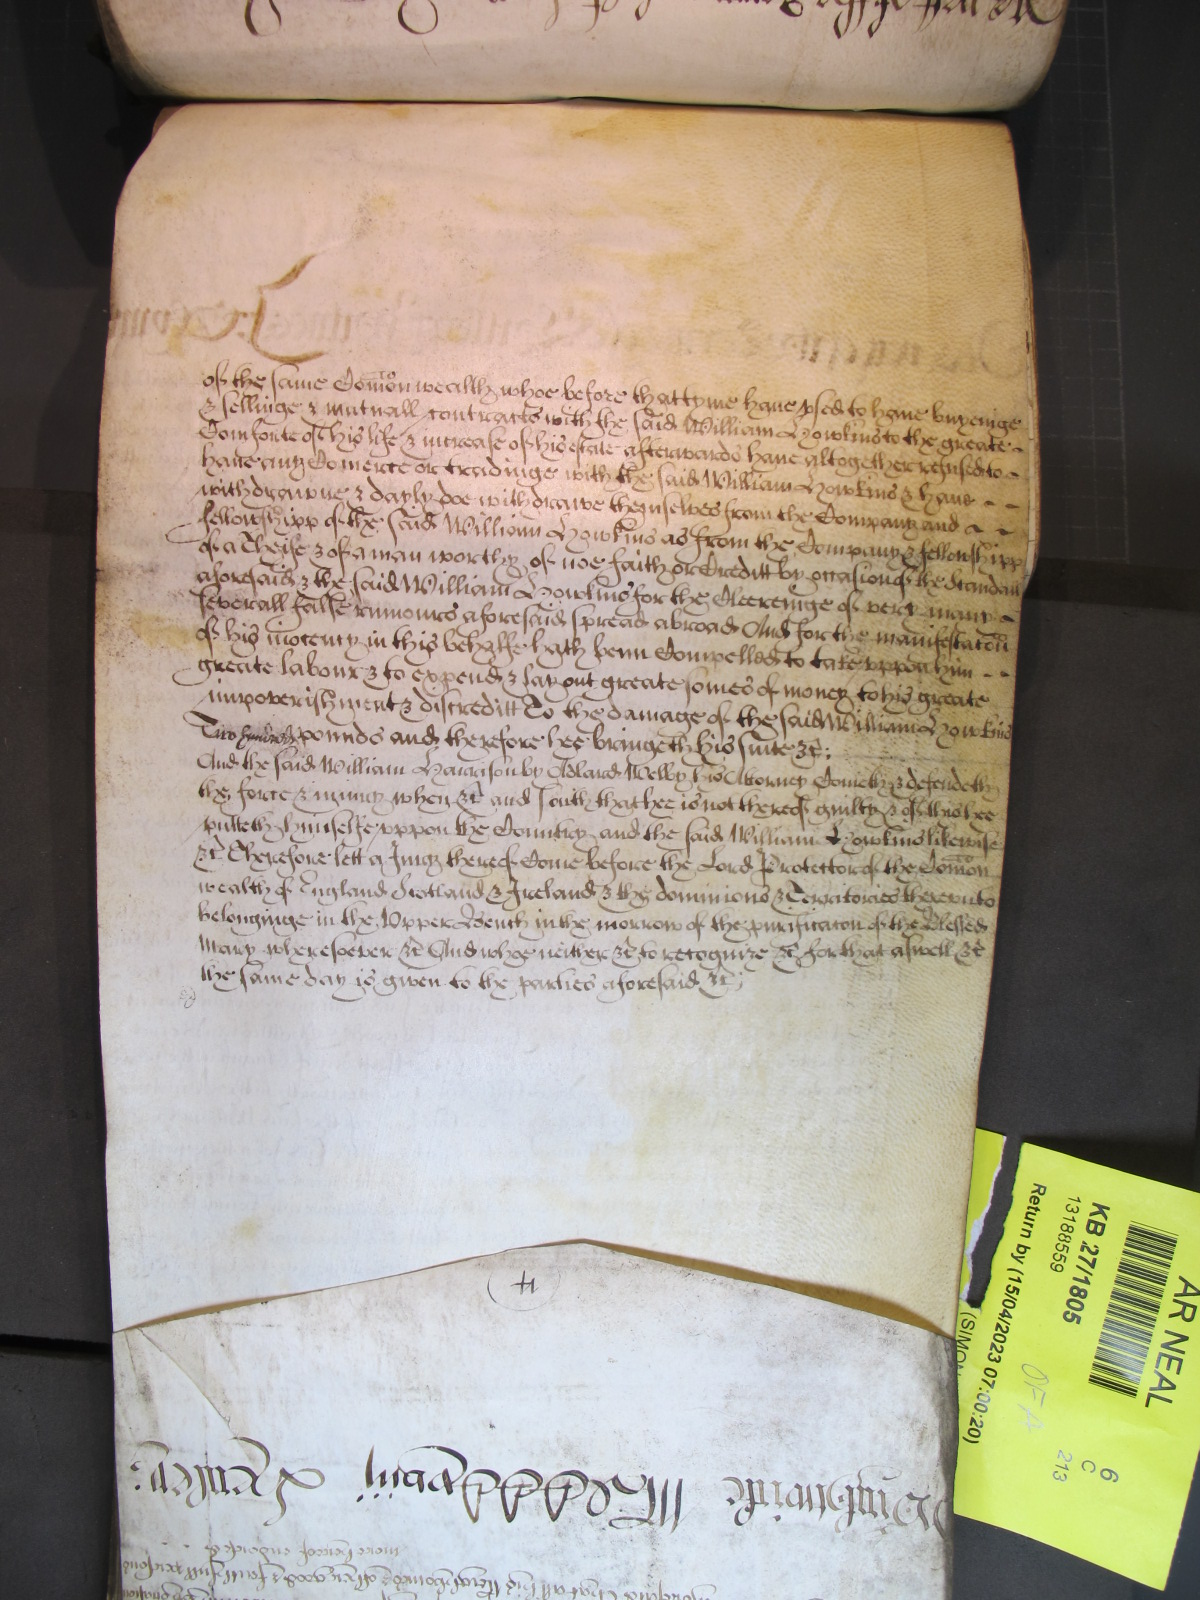 of the same Com̄on wealth whoe before that tyme have vsed to have buyeinge
& sellinge & mutuall contracts with the said William Howkins to the greate
Comforte of his life & increase of his estate afterwards have altogether refused to
have any Com̄erce or tradinge with the said William Howkins & have
withdrawne & dayly doe withdrawe themselves from the Company and
fellowshipp of the said William Howkins as from the Company & fellowshipp
of a Theife & of a man worthy of noe faith or Creditt by occasion of the Scandall
aforesaid & the said William Howkins for the Cleereinge of very many
severall false rumours aforesaid spread abroad And for the manifestacōn
of his inocency in this behalfe hath benn Compelled to take vppon him
greate labour & to expend & lay out greate somes of money to his greate
impoverishment & discreditt To the damage of the said William Howkins
Two hundred pounds and therefore hee bringeth his suite &c̄;
And the said William Harrison by Adlard Welby his Attorney Cometh & defendeth
the force & iniury when &c̄ and saith that hee is not thereof guilty & of this hee
putteth himselfe vppon the Countrey and the said William Howkins likewise
&c̄ Therefore lett a Jury thereof Come before the Lord Protector of the Com̄on
wealth of England Scotland & Ireland & the dominions & Territories therevnto
belonginge in the Vpper Bench in the morrow of the purificacōn of the blessed
Mary wheresoever &c̄ And whoe neither &c̄ to recognize &c̄ for that aswell &c̄
the same day is given to the parties aforesaid &c̄;
AR NEAL
KB 27/1805
13188559
Return by (15/04/2023 07:00:20)
(SIMON
6
C
213